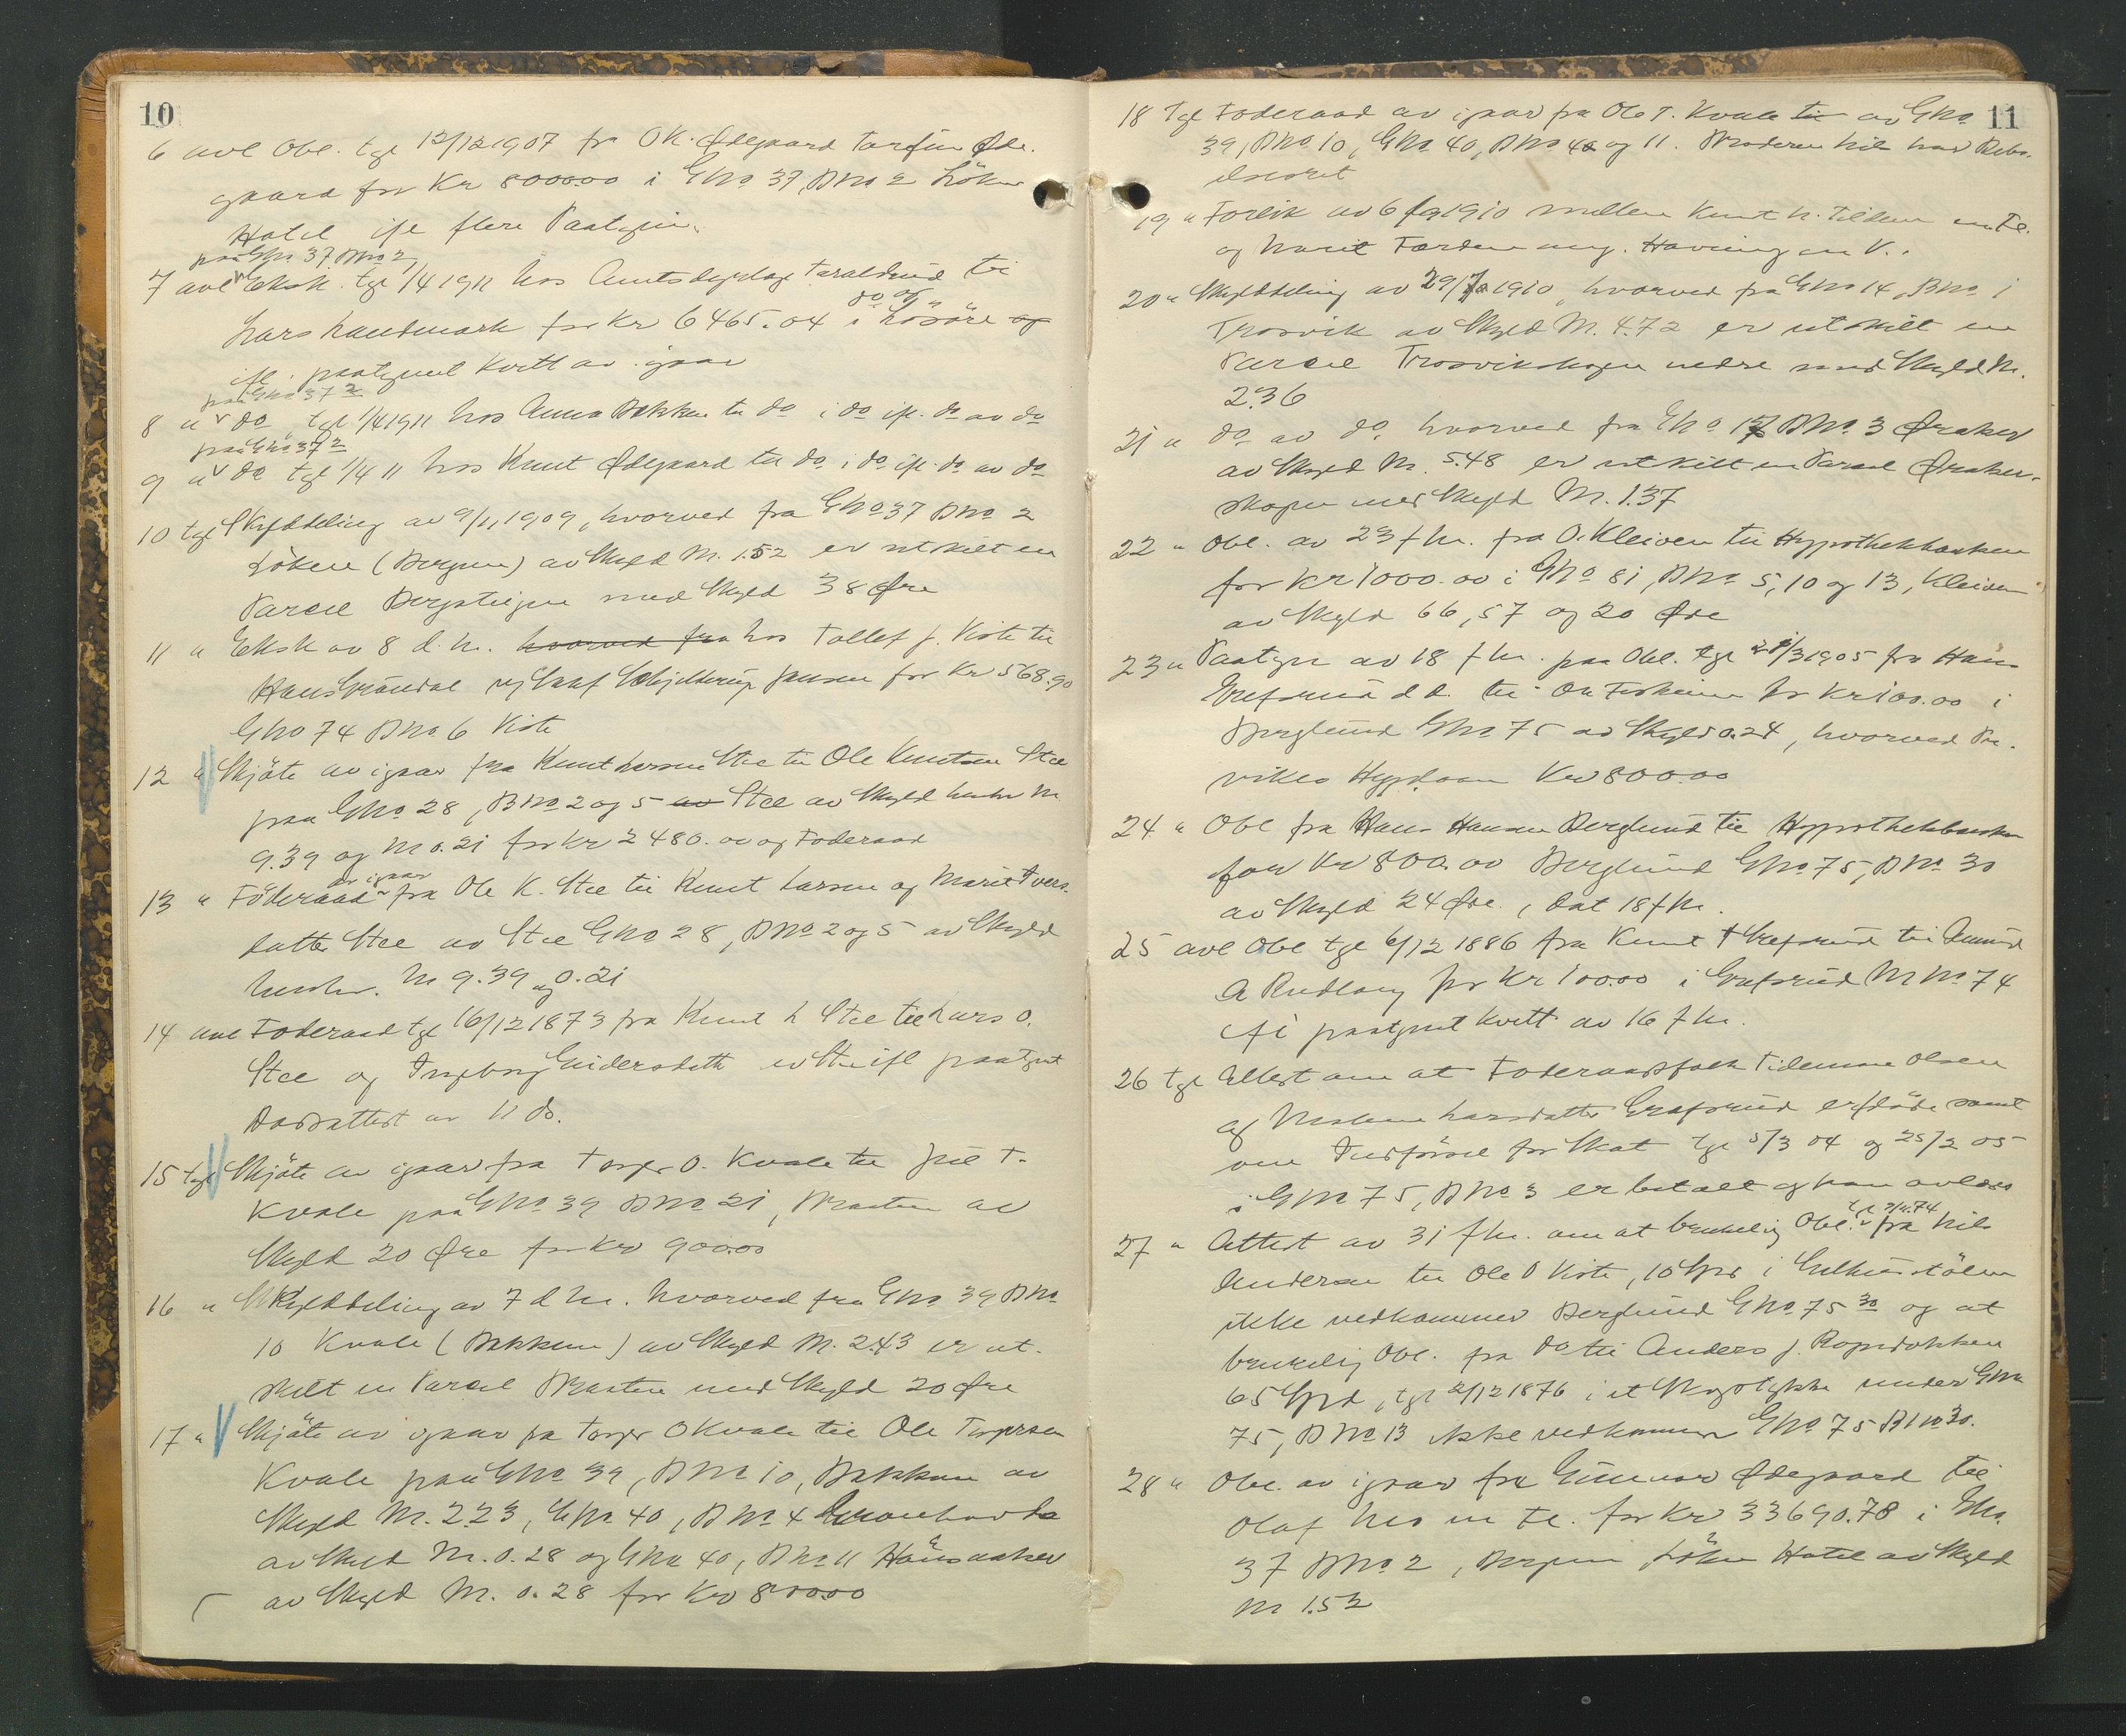 10
6 avl Obl. tgl 12/12 1907 fr OK. Ødegaard Torfin Øde-
gaard for Kr 8000.00 i GNo 37, BNo 2 Löken
Hotel ifl flere Paategn.
paa GNo 37 BNo 2
7 avl Eksk. tgl 1/4 1911 hos Amtsdyrlæge Taraldrud til
do og
Lars Landmark for Kr 6465.04 i Løsöre og
ifl. paategnet Kvitt av igaar
paa GNo 37 2
8 " do, tgl 1/4 1911 hos Anna Bakken til do i do ifl. do av do
paa GNo 37 2
9 " do tgl 1/4 11 hos Knut Ødegaard til do i do ifl. do av do
10 tgl Skylddeling av 9/11 1909, hvorved fra GNo 37 BNo 2
Löken (Bergene) av Skyld M. 1.52 er utskilt en
Parcel Bergsteigen med Skyld 38 Øre
11 " Eksk av 8 d. M. hvorved fra hos Tollef J. Viste til
Hans Gröndal og Schjelderup Jensen for Kr 568.90
GNo 74 BNo 6 Viste
12 " Skjöte av igaar fra Knut Larsen Stee til Ole Knutsen Stee
paa GNo 28, BNo 2 og 5 av Stee av Skyld henhv M
9.39 og M 0.21 for Kr 2480.00 og Foderaad
av igaar
13 " Föderaad fra Ole K. Stee til Knut Larsen og Marit Ivers-
datter Stee av Stee GNo 28, BNo 2 og 5 av Skyld
henhv. M 9.39 og 0.21
14 avl Foderaad tgl 16/12 1873 fra Knut L Stee til Lars O.
Stee og Ingeborg Endersdatt av Stee ifl paategnet
Daasattest av 11 ds.
15 tgl Skjöte av igaar fra Torger O. Kvale til Juel T.
Kvale paa GNo 39 BNo 21, Braaten av
Skyld 20 Øre for Kr 900.00
16 " Skylddeling av 7 d M. hvorved fra GNo 39 BNo
10 Kvale (Bakken) av Skyld M. 2.43 er ut-
skilt en Parcel Braaten med Skyld 20 Øre
17 " Skjöte av igaar fra Torger O Kvale til Ole Torgersen
Kvale paa GNo 39, BNo 10, Bakken av
Skyld M. 2.23, GNo 40, BNo 4
av Skyld M. 0.28 og GNo 40, BNo 11
av Skyld M. 0.28 for Kr 8000.00
11
18 tgl Foderaad av igaar fra Ole T. Kvale til av GNo
39, BNo 10, GNo 40, BNo 4 og 11.
19 " Forlik av 6/9 1910 mellem Knut N.
og Marit
20 " Skylddeling av 29/7 1910, hvorved fra GNo 14, BNo 1
Trosvik av Skyld M. 4.72 er utskilt en
Parcel Trosvikshagen nedre med Skyld M.
2.36
21 " do av do, hvorved fra GNo 17 BNo 3 Øraker
av Skyld M. 5.48 er utskilt en Parcel Øraker-
skogen med Skyld M. 1.37
22 " Obl. av 23 f M. fra O. Kleiven til Hypothekbanken
for Kr 1000.00 i GNo 81, BNo 5, 10 og 13, Kleiven
av Skyld 66, 57 og 20 Øre
23 " Paategn av 18 f M. paa Obl. tgl 21/3 1905 fra Hans
Grefsrud d d. til O. Forkerin for Kr 100.00 i
Berglund GNo 75 av Skyld 0.24, hvorved Pri-
vikes Hypl.laan Kr 800.00
24 " Obl fra Hans Hansen Berglund til Hypothekbanken
for Kr 800.00 Berglund GNo 75, BNo 30
av Skyld 24 Øre., dat 18 f M.
25 avl Obl tgl 6/12 1886 fra Knut T Grefsrud til Amund
A Rudlang for Kr 100.00 i Grefsrud MNo 74
ifl paategnet Kvitt av 16 f M.
26 tgl Attest om at Foderaadsfolk Tidemann Olsen
og Larsdatter Grefsrud er döde samt
om Indförsel for Skat tgl 5/3 04 og 25/2 05
i GNo 75, BNo 3 er betalt og kan avlæses
tgl 7/11.74
27 " Attest av 31 f M. om at Obl. fra Nils
Andersen til Ole O Viste, 10 Spd i
ikke vedkommer Berglund GNo 75 30 og at
Obl. fra do til Anders J. Rogndokken
65 Spd, tgl 2/12 1876 i et Skogstykke under GNo
75, BNo 13 ikke vedkommer GNo 75 BNo 30.
28 " Obl. av igaar fra Gunnar Ødegaard til
Olaf Nes m fl. for Kr 33690.78 i GNo.
37 BNo 2, Bergene, Löken Hotel av Skyld
M 1.52